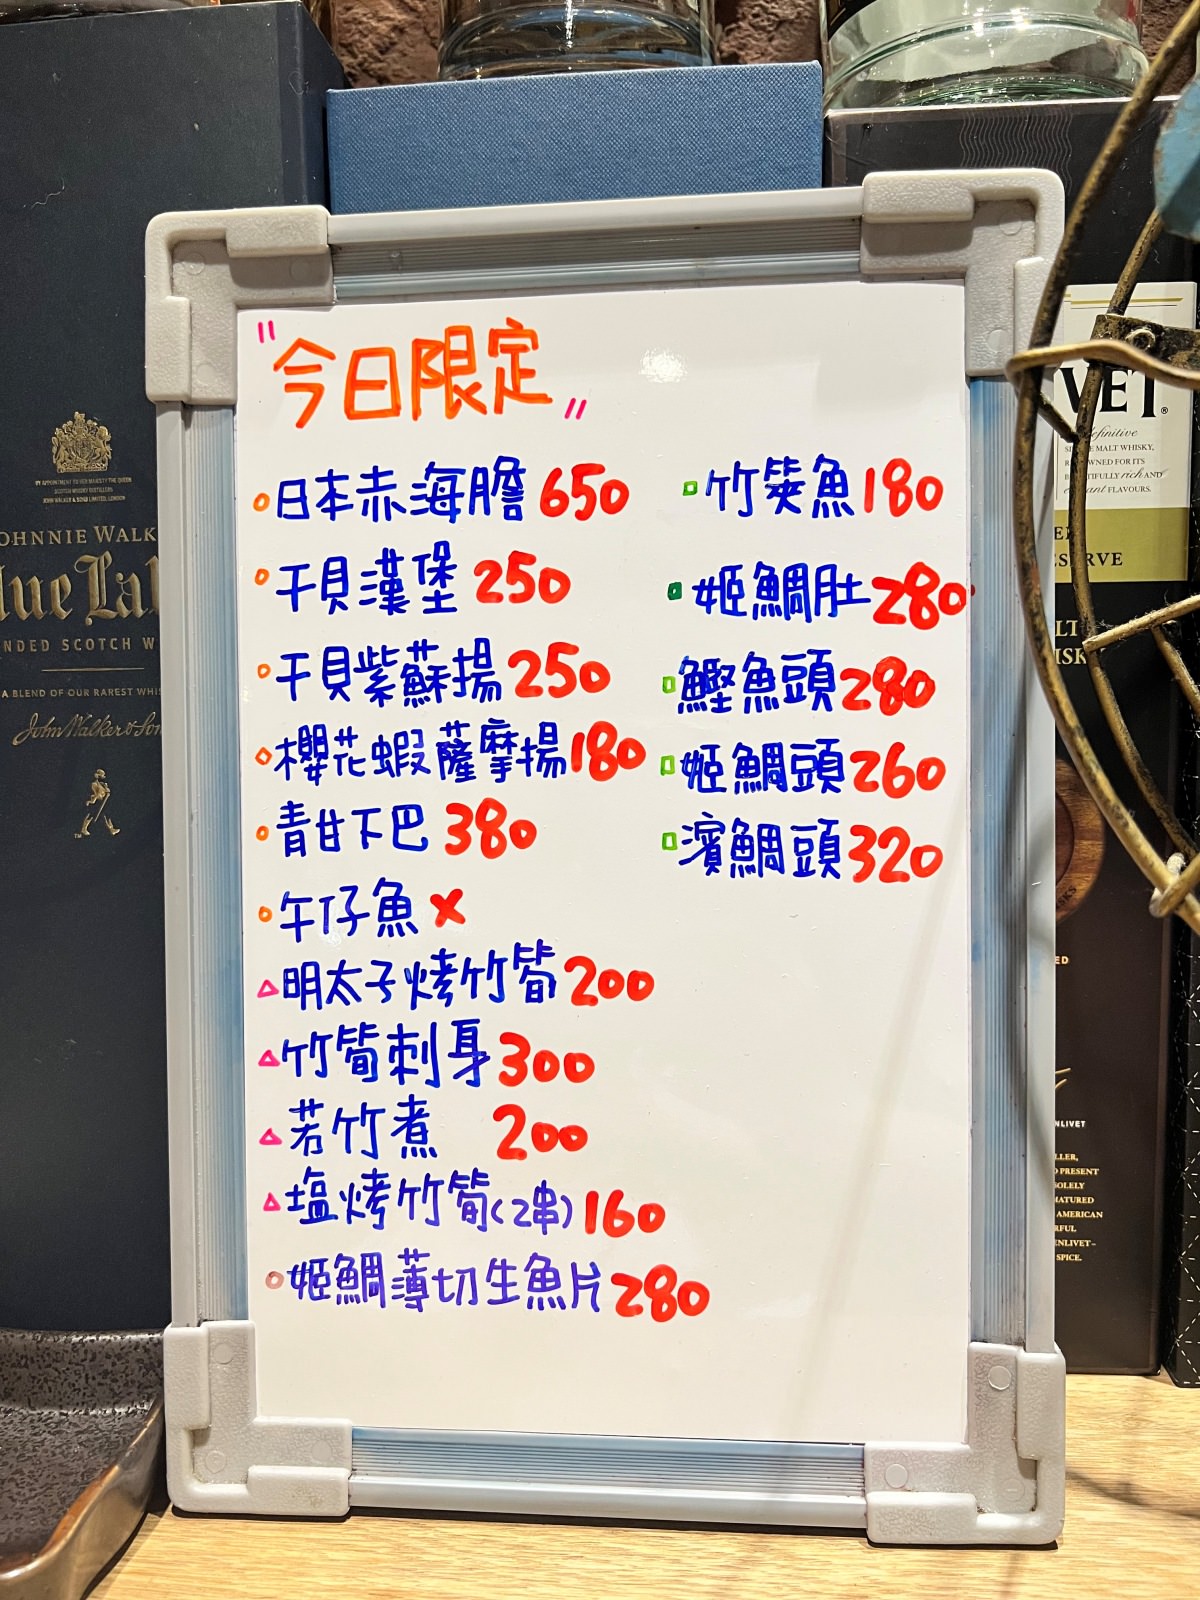 "今日限定"
日本赤海膽 650
干貝漢堡 250
干貝紫蘇揚 250
櫻花蝦薩摩揚 180
青甘下巴 380
午仔魚 x
明太子烤竹筍 200
竹筍刺身 300
若竹煮 200
塩烤竹筍(2串) 160
姬鯛薄切生魚片 280
竹筴魚 180
姬鯛肚 280
鰹魚頭 280
姬鯛頭 260
濱鯛頭 320
BY APPOINTMENT TO HER MAJESTY THE QUEEN
SCOTCH WHISKY DISTILLERS
JOHN WALKER & SONS LIMITED, LONDON
OHNNIE WALK
lue La
NDED SCOTCH W
A BLEND OF OUR RAREST WHIS
John Walker & Son
VET
definitive
MALT WHISKY,
OWNED FOR ITS
rich AND
FLAVOURS.
SERVE
LT
ISK
ED
NLIVET
LLER,
PRESENT
SOLELY
MATURED
AMERICAN
RFUL
ENLIVET–
SPICE.